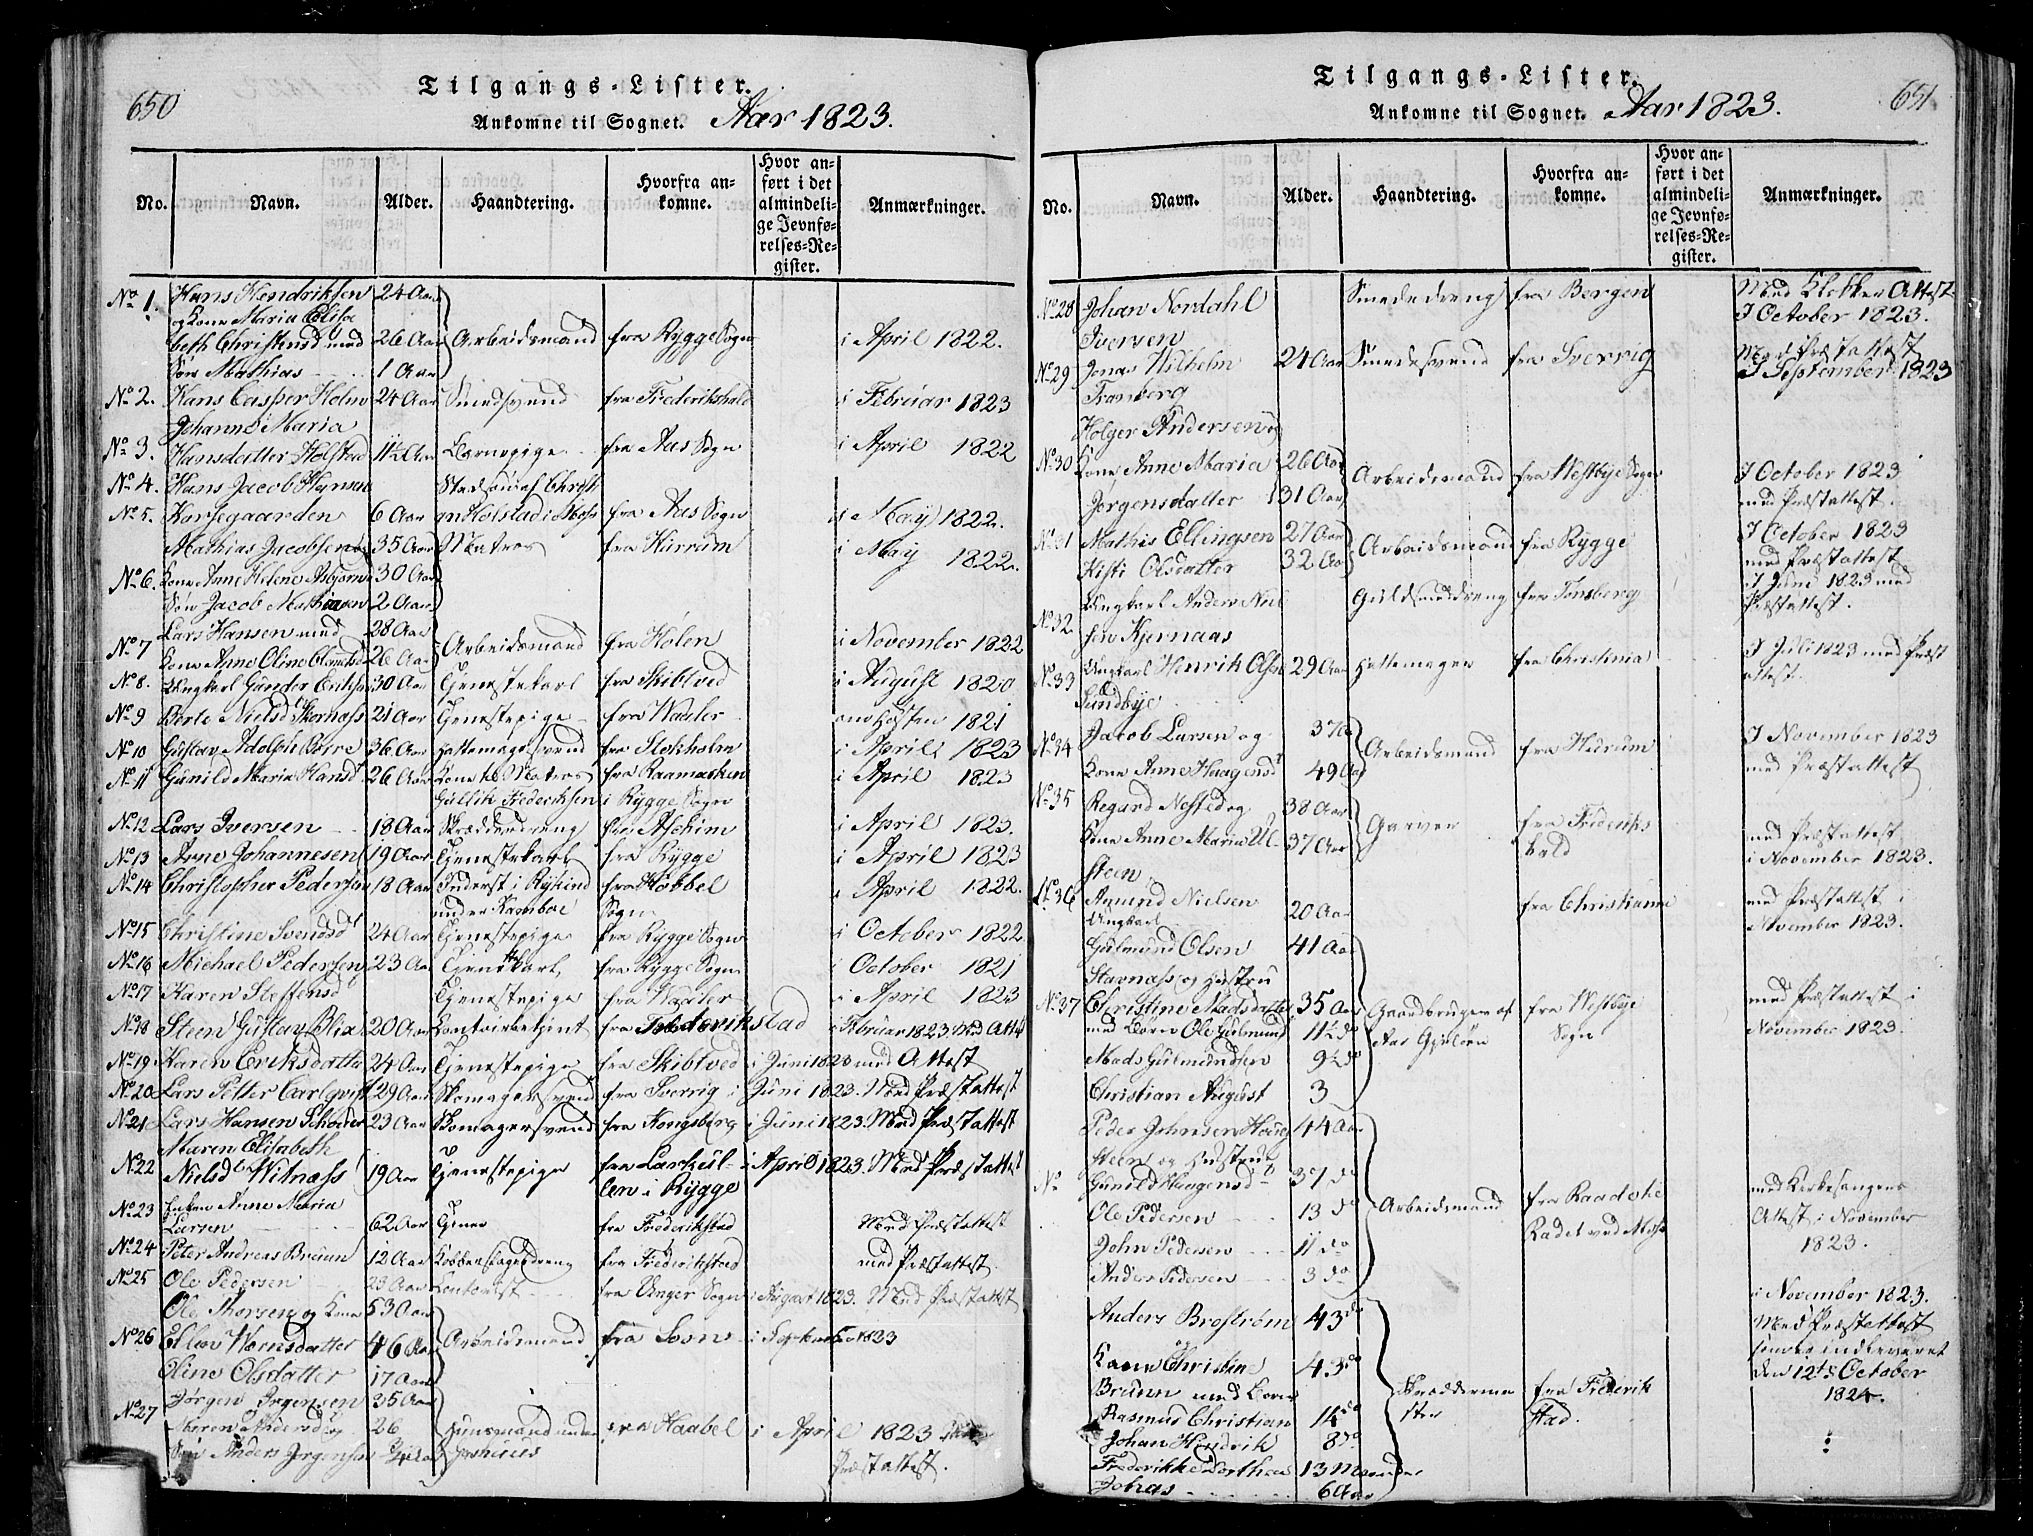 650
Tilgangs-Lister.
Ankomne til Sognet. Aar 1823.
No. Navn. Alder. Haandtering. Hvorfra ankomne. Hvor anført i det almindelige Jevnførelses-Register. Anmærkninger.
No 1. Hans Hendriksen 24 Aar
og Kone Maria Elisa
beth Christensd med 26 Aar Arbeidsmand fra Rygge Sogn i April 1822.
Søn Mathias 1 Aar
No 2. Hans Casper Holm 24 Aar Smedsvend fra Frederikshald i Februar 1823
Johanne Maria
No 3. Hansdatter Holstad 11½ Aar Barnepige fra Aas Sogn i April 1822
No 4. Hans Jacob Hansen
No 5. Korsegaarden 6 Aar fra Aas Sogn i May 1822.
Mathias Jacobsen 35 Aar Matros fra Hurrum i May 1822.
No 6. Kone Anne Helene 30 Aar
Søn Jacob Mathiasen 2 Aar
Lars Hansen med 28 Aar
No 7 Kone Anne Oline 26 Aar Arbeidsmand fra Holen i November 1822
No 8. Ungkarl Gunder Eriksen 30 Aar Tjenestekarl fra Skibtved i August 1820
No 9 Berte Nielsd 21 Aar Tjenestepige fra Waaler om Høsten 1821
No 10 Gustav Adolph 36 Aar Hattemagersvend fra Stokholm i April 1823
No 11 Gunild Maria Hansd 26 Aar Kone til Matros fra Raamasken i April 1823
Gullik Frederiksen i Rygge Sogn
No 12 Lars Iversen 18 Aar Skrædderdreng fra Aschim i April 1823.
No 13 Arne Johannesen 19 Aar Tjenestekarl fra Rygge i April 1823
No 14 Christopher Pedersen 18 Aar Inderst i Rykind fra Høbbel i April 1822.
under Kamboe Sogn
No 15 Christine Svendsd 24 Aar Tjenestepige fra Rygge Sogn i October 1822
No 16 Michael Pedersen 23 Aar Tjenstkarl fra Rygge Sogn i October 1821
No 17 Karen Steffensd Tjenestepige fra Waaler i April 1823
No 18 Steen Gustav Blix 20 Aar Contoirbetjent fra Frederikstad i Februar 1823 Med Attest
No 19 Karen Eriksdatter 24 Aar Tjenestepige fra Skibtved i Juni 1823 med Attest
No 20 Lars Petter Carlqvist 29 Aar Skomagersvend fra Sverrig i Juni 1823. Med Præstattest
No 21 Lars Hansen 23 Aar Skomagersvend fra Kongsberg i Juni 1823. Med Præstattest
Maren Elisabeth
No 22 Nielsd Witnæss 19 Aar Tjenestepige fra Larkul- i April 1823. Med Præstattest
len i Rygge
No 23 Enken Anne Maria
Larsen 62 Aar Tjener fra Frederikstad Med Præstattest
No 24 Peter Andreas Bruun 12 Aar Kobberslagerdreng fra Frederikstad med Præstattest.
No 25 Ole Pedersen 23 Aar Contorist fra Onsøe Sogn i August 1823. Med Præstattest
Ole Thorsen og Kone 53 Aar
No 26 Ellen 46 Aar Arbeidsmand fra Soon i September 1823
Oline Olsdatter 17 Aar
Jørgen Jørgensen 35 Aar
No 27 Maren 26 Huusmand under fra Haabel i April 1823
Søn Anders Jørgensen Præstattest.
651
Tilgangs-Lister.
Ankomne til Sognet. Aar 1823.
No. Navn. Alder. Haandtering. Hvorfra ankomne. Hvor anført i det almindelige Jevnførelses-Register. Anmærkninger.
No 28 Johan Nordahl Smededreng fra Bergen Med Klokker Attest
Iversen I October 1823.
No 29 Jonas Wilhelm 24 Aar Smedesvend fra Sverrig Med Præstattest
Tranberg I September 1823
Holger Andersen og
No 30 Kone Anne Maria 26 Aar Arbeidsmand fra Westbye Sogn I October 1823
Jørgensdatter 31 Aar med Præstattest.
No 31 Mathis Ellingsen 27 Aar Arbeidsmand fra Rygge I October 1823
Kisti Olsdatter 32 Aar med Præstattest
No 32 Ungkarl Anders Niel Guldsmeddreng fra Tønsberg I Juni 1823 med
sen Kjernaas Præstattest.
No 33 Ungkarl Henrik Olsen 29 Aar Hattemager fra Christinia I Juli 1823 med Præst
Sundbye attest.
No 34 Jacob Larsen og 37 Aa Arbeidsmand fra Hidrum I November 1823
Kone Anne Haagensd 49 Aar med Præstattest
No 35 Regard Nested og 38 Aar Garver fra Frideriks med Præstattest
Kone Anne Maria Ul- 37 Aar hald i November 1823.
steen
No 36 Amund Nielsen 20 Aar fra Christiania med Præstattest i
Ungkarl November 1823.
Gulmund Olsen 41 Aar
Stavnæss og Hustru
No 37 Christine Madsdatter 35 Aar Gaardbruger af fra Westbye med Præstattest i
med Børn Ole Gulmund 11½ do Aas Sogn November 1823.
Mads Gulmundsen 9½ do
Christian August 3
Peder Johnsen 44 Aar
steen og Hustrue
No Gunild Haagensd 37 do
Ole Pedersen 13 do Arbeidsmand fra Raadole med Kirkesangers
John Pedersen 11 do Kadet ved Moss Attest i November
Anders Pedersen 3 do 1823.
Anders Brostrøm 43 do i November 1823.
og Med Præstattest
Karen Christine 43 do som er indleveret
Bruun med Børn Skrædderme fra Friderik den 12te October
Rasmus Christian 14 do ster stad. 1824.
Johan Hendrik 8 do
Frederikke Dorthea 13 Maaneder
Johas 6 Aar